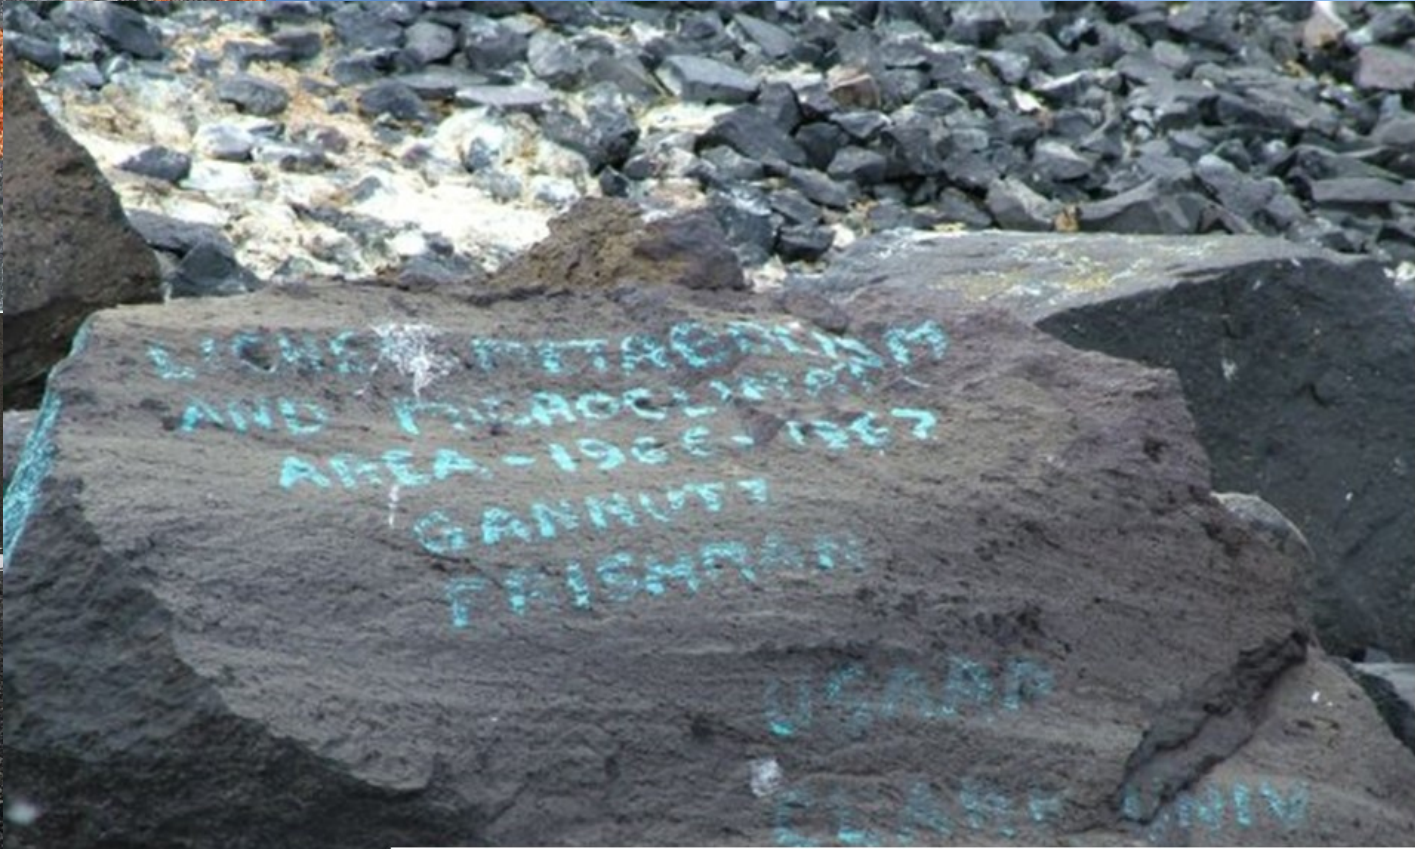 LICHEN METABOLISM
AND MICROCLIMATE
AREA - 1966 - 1967
GANNUTZ
FRISHMAN
USARP
CLARK UNIV